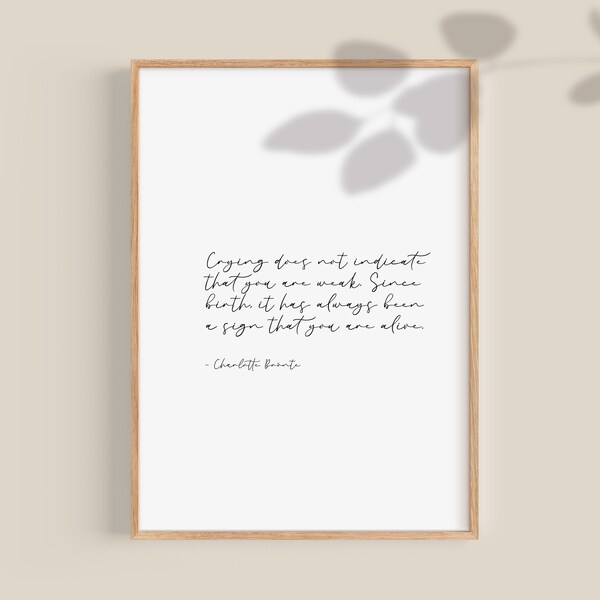 Crying does not indicate
that you are weak. Since
birth, it has always been
a sign that you are alive.
- Charlotte Brönte